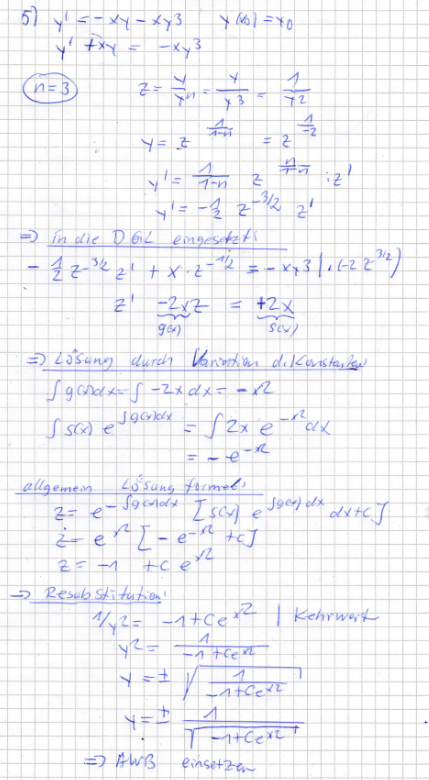 5) y' = -xy - xy³    y(x₀) = y₀
y' + xy = -xy³
n=3    z = y/yⁿ = y/y³ = 1/y²
y = z^(1/(1-n)) = z^(1/-2)
y' = 1/(1-n) z^(n/(1-n)) · z'
y' = -1/2 z^(-3/2) z'
=> in die DGL eingesetzt:
-1/2 z^(-3/2) z' + x · z^(-1/2) = -xy3 | · (-2 z^(3/2))
z' -2xz = +2x
g(x)    s(x)
=> Lösung durch Variation d. Konstanten
∫g(x)dx = ∫-2x dx = -x²
∫s(x) e^(∫g(x)dx) = ∫2x e^(-x²) dx
= -e^(-x²)
allgemein Lösung formel:
z = e^(-∫g(x)dx) [∫s(x) e^(∫g(x)dx) dx + c]
z = e^(x²) [-e^(-x²) + c]
z = -1 + c e^(x²)
=> Resubstitution:
1/y² = -1 + Ce^(x²) | Kehrwert
y² = 1/(-1 + Ce^(x²))
y = ± √(1/(-1 + Ce^(x²)))
y = ± 1/√(-1 + Ce^(x²))
=> AWB einsetzen